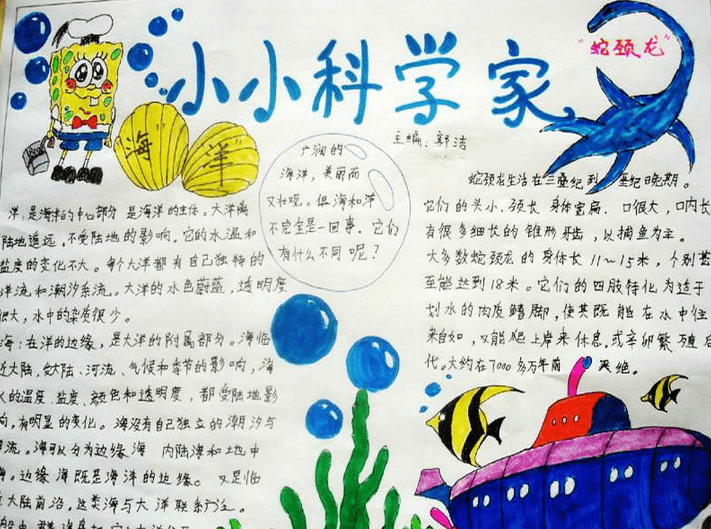 小小科学家
主编:郭洁
"海
洋"
广阔的
海洋,美丽而
又壮观。但海和洋
不完全是一回事。它们
有什么不同呢?
洋:是海洋的中心部分 是海洋的主体。大洋离
陆地遥远,不受陆地的影响。它的水温和
盐度的变化不大。每个大洋都有自己独特的
洋流和潮汐系流。大洋的水色蔚蓝,透明度
很大,水中的杂质很少。
海:在洋的边缘,是大洋的附属部分。海临
近大陆,受大陆、河流、气候和季节的影响,海
水的温度、盐度、颜色和透明度,都受陆地影
响,有明显的变化。海没有自己独立的潮汐与
海流。海可以分为边缘海 内陆海和地中
海。边缘海既是海洋的边缘。又是临
近大陆前沿。这类海与大洋联系广泛。
"蛇颈龙"
蛇颈龙生活在三叠纪到 垩纪晚期。
它们的头小、颈长 身体宽扁、口很大,口内长
有很多细长的锥形牙齿,以捕鱼为主。
大多数蛇颈龙的身体长11~15米,个别甚
至能达到18米。它们的四肢特化为适于
划水的肉质鳍脚,使其既能在水中往
来自如,又能爬上岸来休息,或
繁殖后
代。大约在7000多万年前 灭绝。